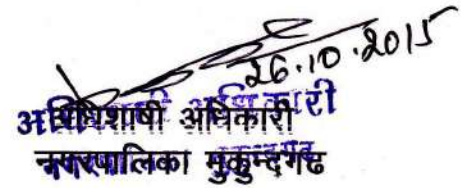 26.10.2015
अधिशाषी अधिकारी
नगरपालिका मुकुन्दगढ